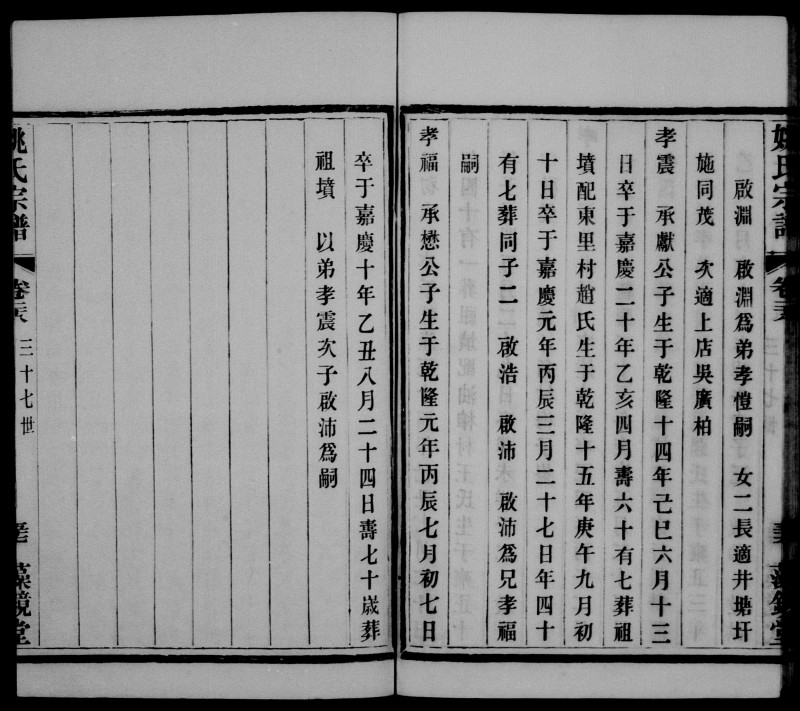 姚氏宗譜
卷三六
啟淵 啟淵爲弟孝愷嗣 女二長適井塘圩
施同茂 次適上店吳廣柏
孝震 承獻公子生于乾隆十四年己巳六月十三
日卒于嘉慶二十年乙亥四月壽六十有七葬祖
墳配東里村趙氏生于乾隆十五年庚午九月初
十日卒于嘉慶元年丙辰三月二十七日年四十
有七葬同子二 啟浩 啟沛 啟沛爲兄孝福
嗣
孝福 承懋公子生于乾隆元年丙辰七月初七日
卒于嘉慶十年乙丑八月二十四日壽七十歲葬
祖墳 以弟孝震次子啟沛爲嗣
姚氏宗譜
三十七世
藻鏡堂